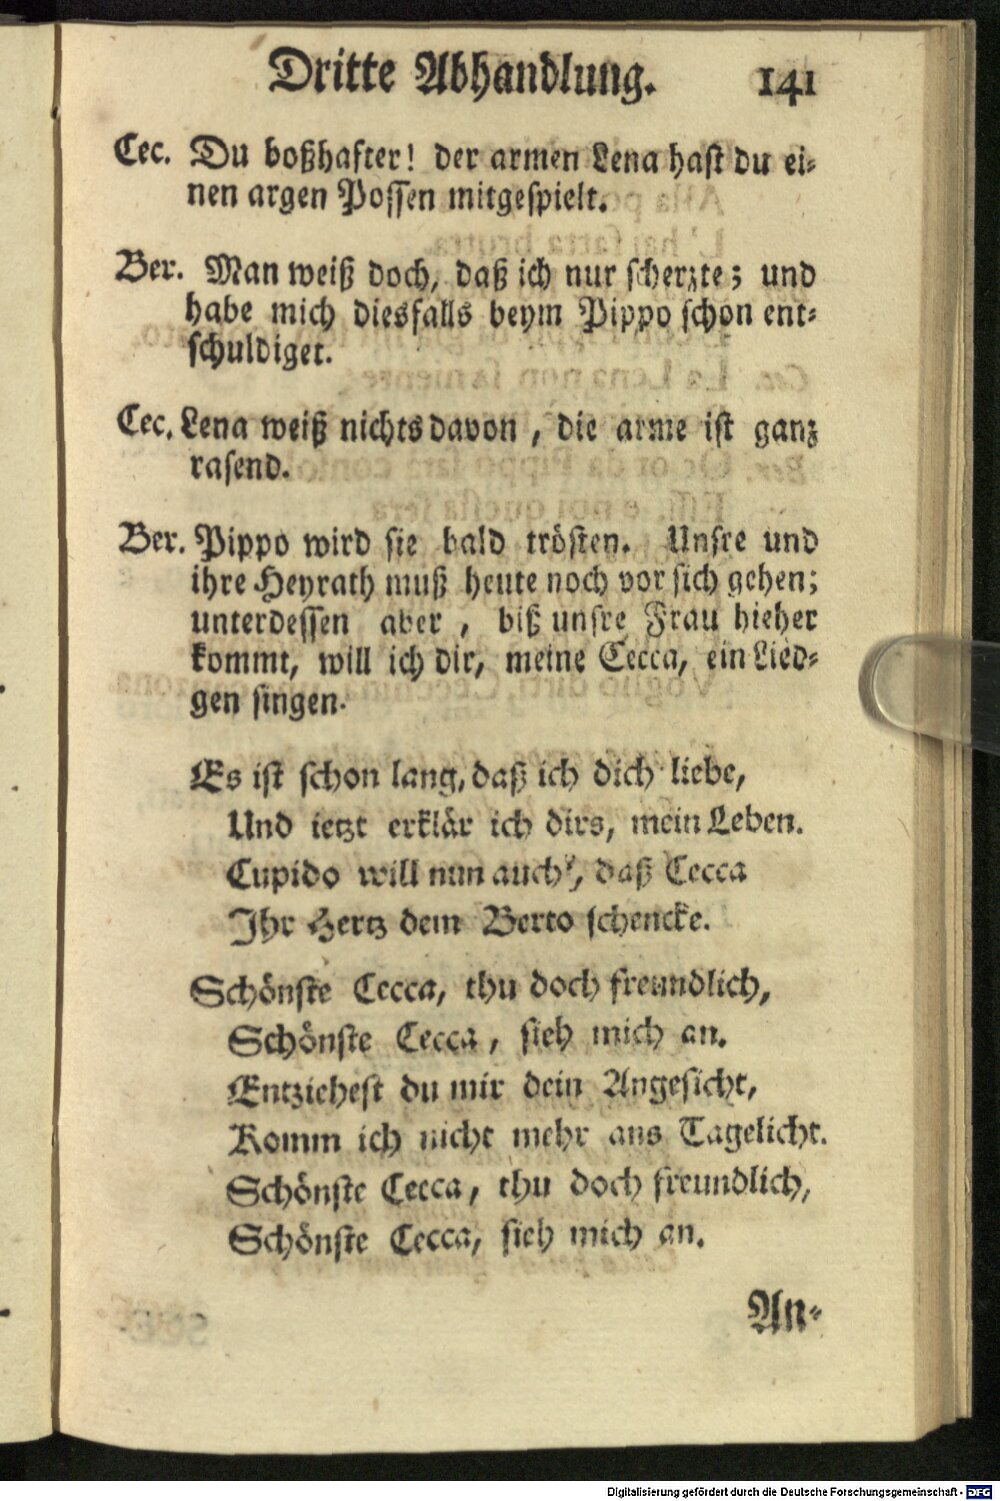 Dritte Abhandlung. 141
Cec. Du boßhafter! der armen Lena hast du ei-
nen argen Possen mitgespielt.
Ber. Man weiß doch, daß ich nur scherzte; und
habe mich diesfalls beym Pippo schon ent-
schuldiget.
Cec. Lena weiß nichts davon, die arme ist ganz
rasend.
Ber. Pippo wird sie bald trösten. Unsre und
ihre Heyrath muß heute noch vor sich gehen;
unterdessen aber, biß unsre Frau hieher
kommt, will ich dir, meine Cecca, ein Lied-
gen singen.
Es ist schon lang, daß ich dich liebe,
Und ietzt erklär ich dirs, mein Leben.
Cupido will nun auch, daß Cecca
Ihr Hertz dem Berto schencke.
Schönste Cecca, thu doch freundlich,
Schönste Cecca, sieh mich an.
Entziehest du mir dein Angesicht,
Komm ich nicht mehr ans Tagelicht.
Schönste Cecca, thu doch freundlich,
Schönste Cecca, sieh mich an.
An-
Digitalisierung gefördert durch die Deutsche Forschungsgemeinschaft - DFG